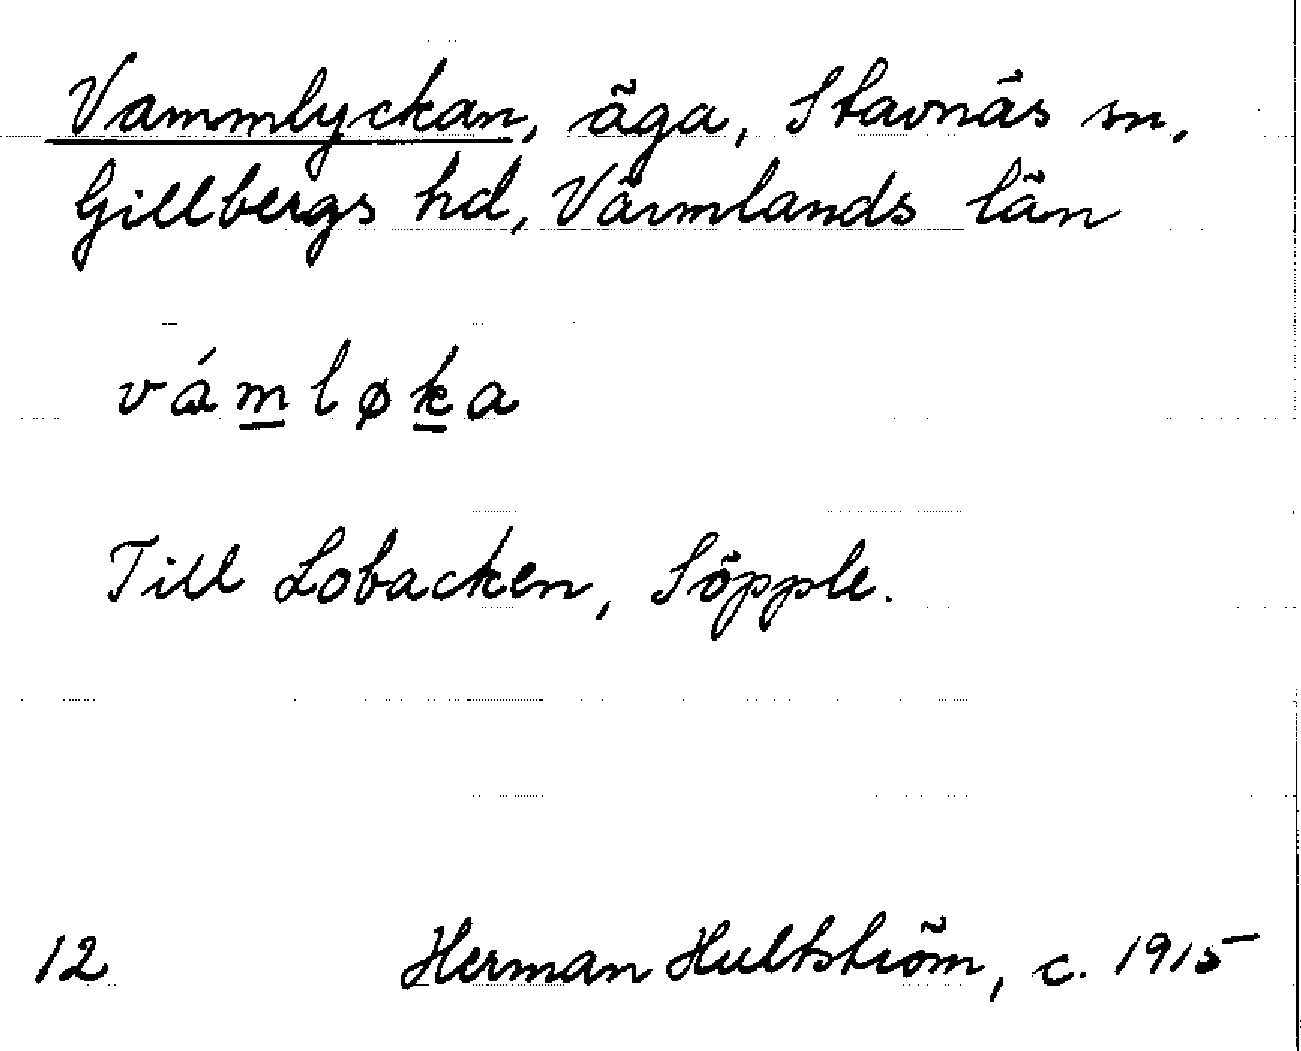 Vammlyckan, äga, Stavnäs sn,
Gillbergs hd, Värmlands län
vám̲løk̲a
Till Lobacken, Söpple.
12 Herman Hultström, c. 1915